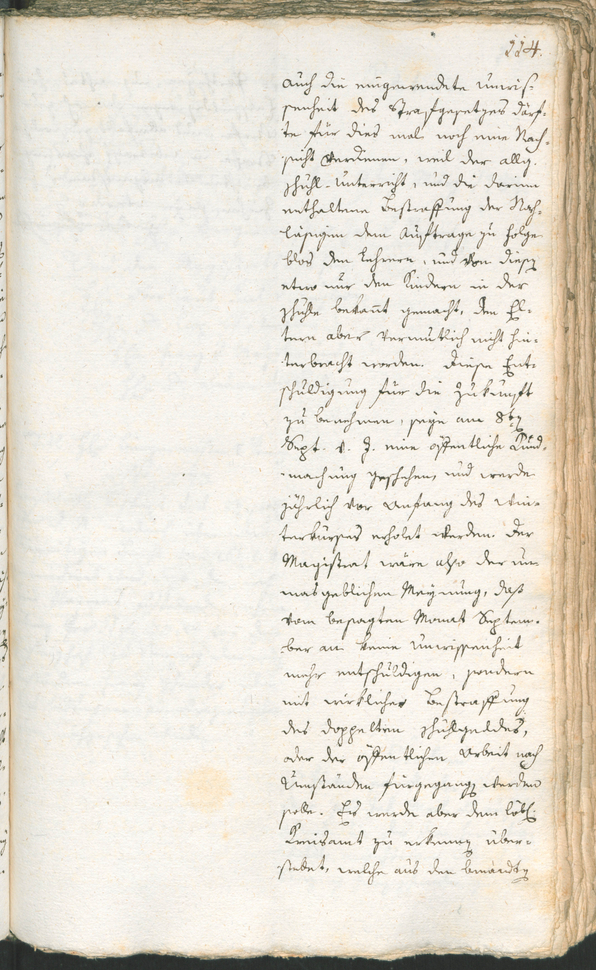 114.
auch die eingewendete Unwis-
senheit des Strafgesetzes dörf-
te für dies mal noch eine Nach-
sicht verdienen, weil der allg.
Schuhl-Unterricht, und die darinn
enthaltene Bestraffung der Nach-
läßigen dem Auftrage zu folge
blos den Lehrern, und von diesen
etwo nur den Kindern in der
Schuhle bekannt gemacht, den El-
tern aber vermutlich nicht hin-
terbracht worden. Diese Ent-
schuldigung für die Zukunft
zu benehmen, seye am 8ten
Sept. v. J. eine öffentliche Kund-
machung geschehen, und werde
jährlich vor Anfang des Win-
terkurses erholet werden. Der
Magistrat wäre also der un-
masgeblichen Meynung, daß
vom besagten Monat Septem-
ber an keine Unwissenheit
mehr entschuldigen, sondern
mit wirklicher Bestraffung
des doppelten Schuhlgeldes,
oder der öffentlichen Arbeit nach
Umständen fürgegangen werden
solle. Es werde aber dem löbl.
Kreisamt zu erkennen über-
stellet, welche aus den benandten